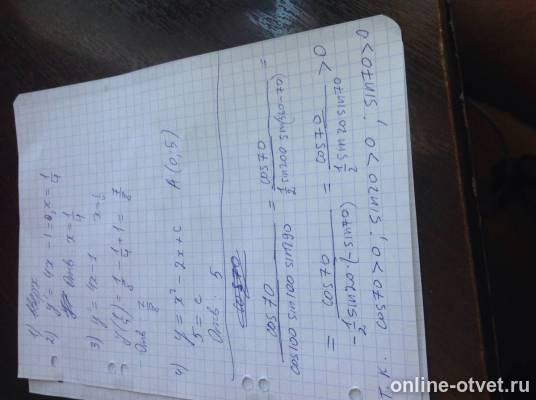 1)
2) y' = 4x - 1 = 0, x = 1/4
Отв x = 1/4
3) y' = 4x - 1
y(1/4) = 1/8 - 1/4 + 1 = 7/8
Отв 7/8
4) y = x² - 2x + c A(0;5)
5 = c
Отв: 5
cos70/(cos100 sin100 sin290) = cos70/(1/2 sin200 sin(360-70)) =
= cos70/(-1/2 sin20·(-sin70)) = cos70/(1/2 sin20 sin70) > 0
т.к. cos70>0, sin20>0, sin70>0
online-otvet.ru